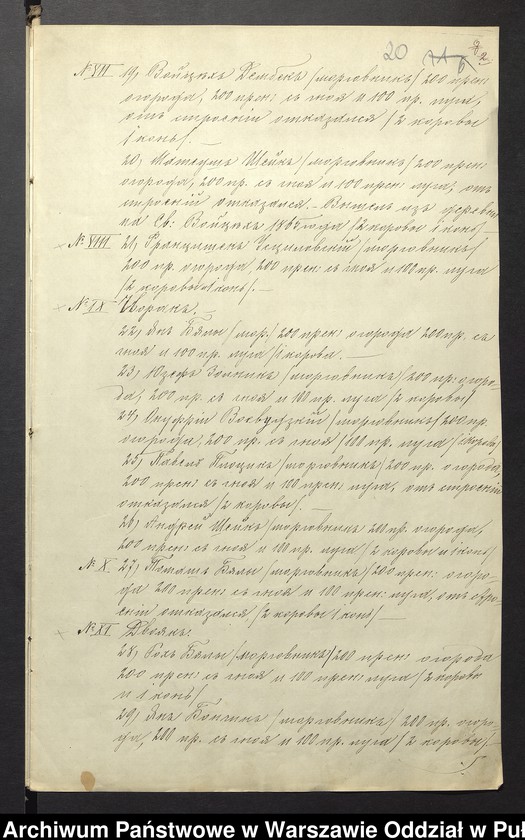 20
№ VII 19, Войцѣхъ Дембекъ /морговникъ/ 200 прен:
огорода, 200 прен: съ тоя и 100 пр. луга,
отъ строеній отказался /2 коровы
1 конь/. —
20, Матеушъ Шейкъ /морговникъ/ 200 прен:
огорода, 200 пр. съ тоя и 100 прен: луга, отъ
строеній отказался. –
на Св: Войцѣхъ 1865 года /2 коровы 1 конь/ —
№ VIII 21, Францишекъ /морговникъ/
200 пр. огорода, 200 прен: съ тоя и 100 пр. луга
/2 коровы 1 конь/. —
№ IX Чворакъ.
22, Янъ Бялы /мор./ 200 прен: огорода 200 пр. съ
тоя и 100 пр. луга /1 корова. —
23, Юзефъ /морговникъ/ 200 пр: огоро-
да, 200 пр. съ тоя и 100 пр. луга /2 коровы/
24, Онуфрій /морговникъ/ 200 пр.
огорода, 200 пр. съ тоя /100 пр. луга
25, Павелъ /морговникъ/ 200 пр. огорода,
200 прен: съ тоя и 100 прен: луга, отъ строеній
отказался /2 коровы/. —
26, Андрей Шейкъ /морговникъ 200 пр. огорода,
200 прен: съ тоя и 100 пр. луга /2 коровы и 1 конь/
№ X. 27, Томашъ Бялы /морговникъ/ 200 прен: огоро-
да 200 прен: съ тоя и 100 прен: луга, отъ стро-
еній отказался /2 коровы 1 конь/ —
№ XI Двоякъ.
28, Рохъ Бялы /морговникъ/ 200 прен: огорода
200 прен: съ тоя и 100 прен: луга /2 коровы
и 1 конь/
29, Янъ /морговникъ/ 200 прен. огоро-
да, 200 пр. съ тоя и 100 пр. луга /2 коровы/. —
Archiwum Państwowe w Warszawie Oddział w Puł